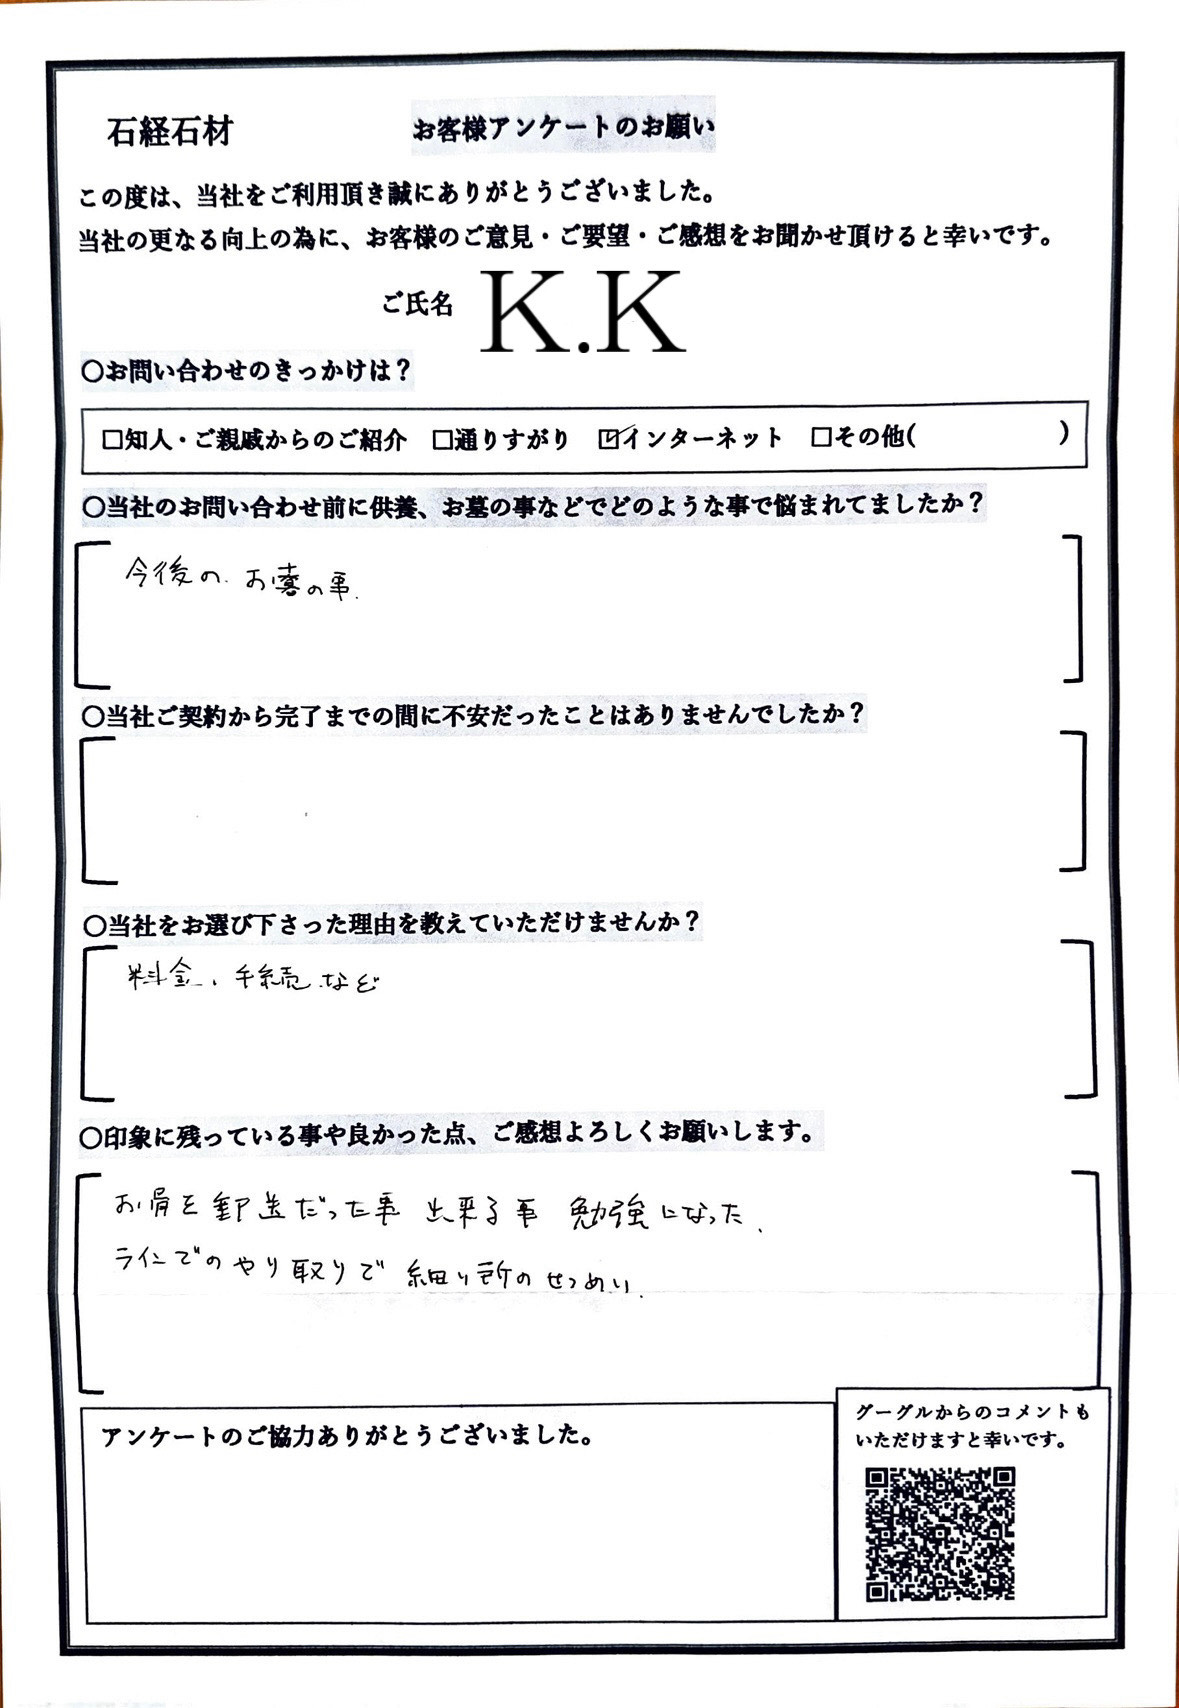 石経石材　お客様アンケートのお願い
この度は、当社をご利用頂き誠にありがとうございました。
当社の更なる向上の為に、お客様のご意見・ご要望・ご感想をお聞かせ頂けると幸いです。
ご氏名　K.K
〇お問い合わせのきっかけは？
□知人・ご親戚からのご紹介　□通りすがり　☑インターネット　□その他(　　　　　　)
〇当社のお問い合わせ前に供養、お墓の事などでどのような事で悩まれてましたか？
今後の お墓の事.
〇当社ご契約から完了までの間に不安だったことはありませんでしたか？
〇当社をお選び下さった理由を教えていただけませんか？
料金、手続 など
〇印象に残っている事や良かった点、ご感想よろしくお願いします。
お骨を 郵送だった事 出来る事 勉強になった.
ラインでのやり取りで 細い所のせつめい.
アンケートのご協力ありがとうございました。
グーグルからのコメントも
いただけますと幸いです。